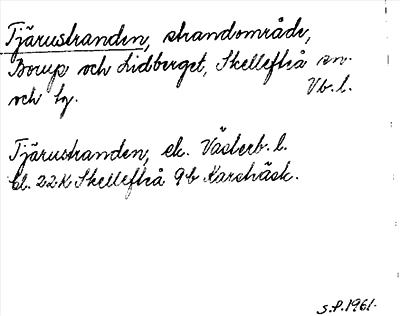 Tjärustranden, strandområde,
Borup och Lidberget, Skellefteå sn.
och lg. Vb. l.
Tjärustranden, ek. Västerb. l.
bl. 22K Skellefteå 9b Karsbäck.
S.P. 1961.